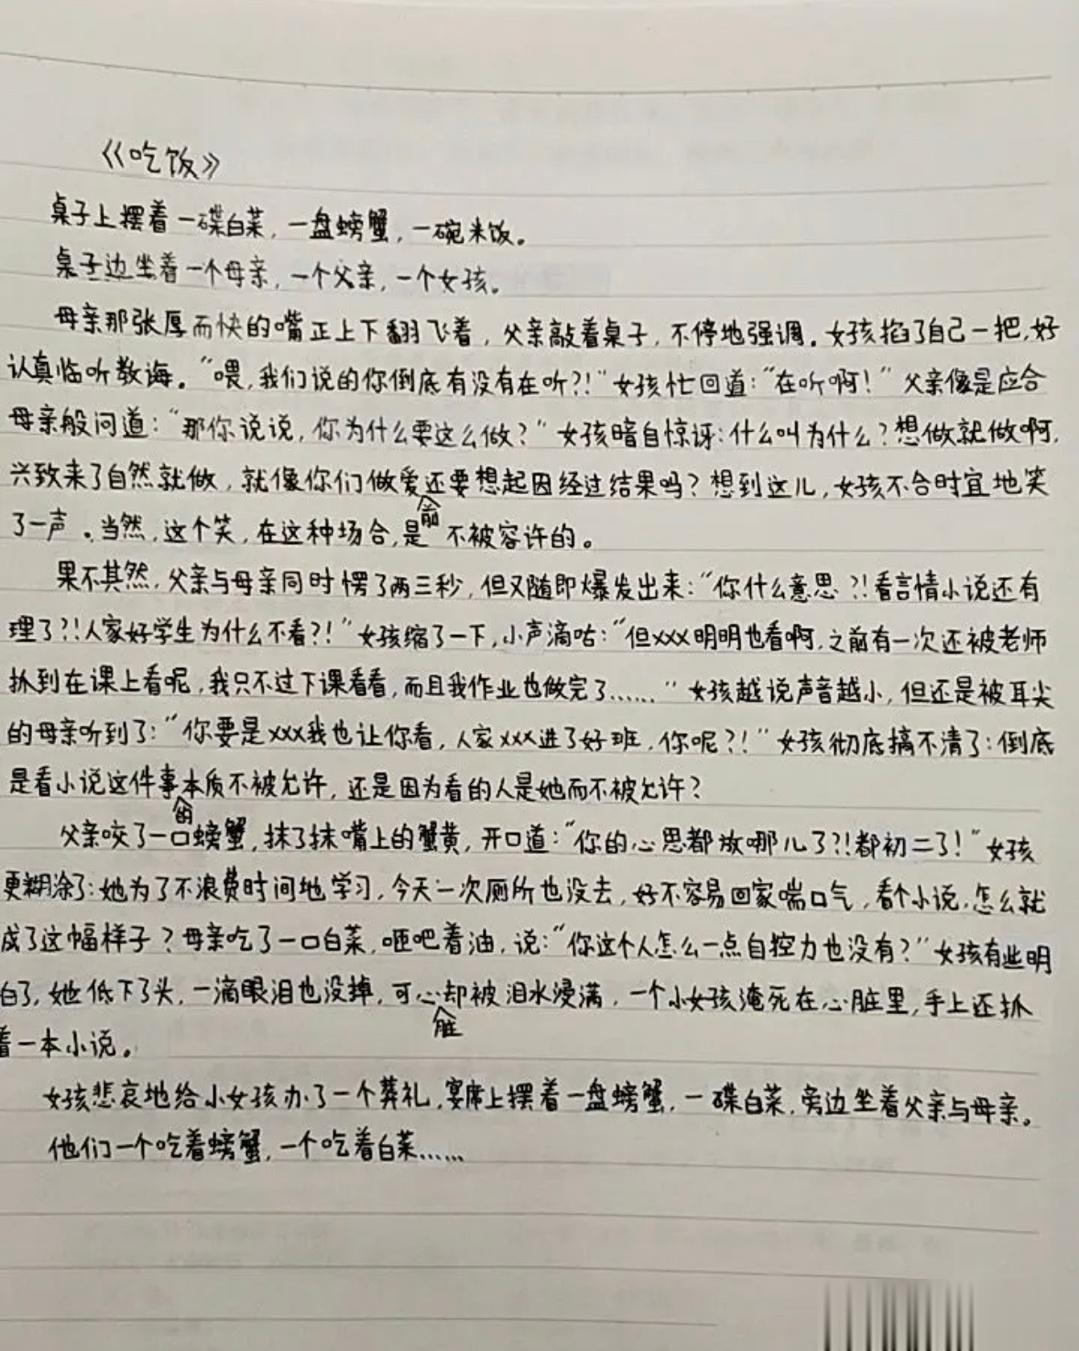 《吃饭》
桌子上摆着一碟白菜，一盘螃蟹，一碗米饭。
桌子边坐着一个母亲，一个父亲，一个女孩。
母亲那张厚而快的嘴正上下翻飞着，父亲敲着桌子，不停地强调。女孩掐了自己一把，好
认真临听教诲。“喂，我们说的你倒底有没有在听?!”女孩忙回道：“在听啊！”父亲像是应合
母亲般问道：“那你说说，你为什么要这么做？”女孩暗自惊讶：什么叫为什么？想做就做啊，
兴致来了自然就做，就像你们做爱前还要想起因经过结果吗？想到这儿，女孩不合时宜地笑
了一声。当然，这个笑，在这种场合，是不被容许的。
果不其然，父亲与母亲同时愣了两三秒，但又随即爆发出来：“你什么意思?!看言情小说还有
理了?!人家好学生为什么不看?!”女孩缩了一下，小声滴咕：“但xxx明明也看啊，之前有一次还被老师
抓到在课上看呢，我只不过下课看看，而且我作业也做完了……”女孩越说声音越小，但还是被耳尖
的母亲听到了：“你要是xxx我也让你看，人家xxx进了好班，你呢?!”女孩彻底搞不清了：倒底
是看小说这件事本质不被允许，还是因为看的人是她而不被允许？
父亲咬了一口的螃蟹，抹了抹嘴上的蟹黄，开口道：“你的心思都放哪儿了?!都初二了！”女孩
更糊涂了：她为了不浪费时间地学习，今天一次厕所也没去，好不容易回家喘口气，看个小说，怎么就
成了这幅样子？母亲吃了一口白菜，咂吧着油，说：“你这个人怎么一点自控力也没有？”女孩有些明
白了，她低下了头，一滴眼泪也没掉，可心脏却被泪水浸满，一个小女孩淹死在心脏里，手上还抓
着一本小说。
女孩悲哀地给小女孩办了一个葬礼，宴席上摆着一盘螃蟹，一碟白菜，旁边坐着父亲与母亲。
他们一个吃着螃蟹，一个吃着白菜……